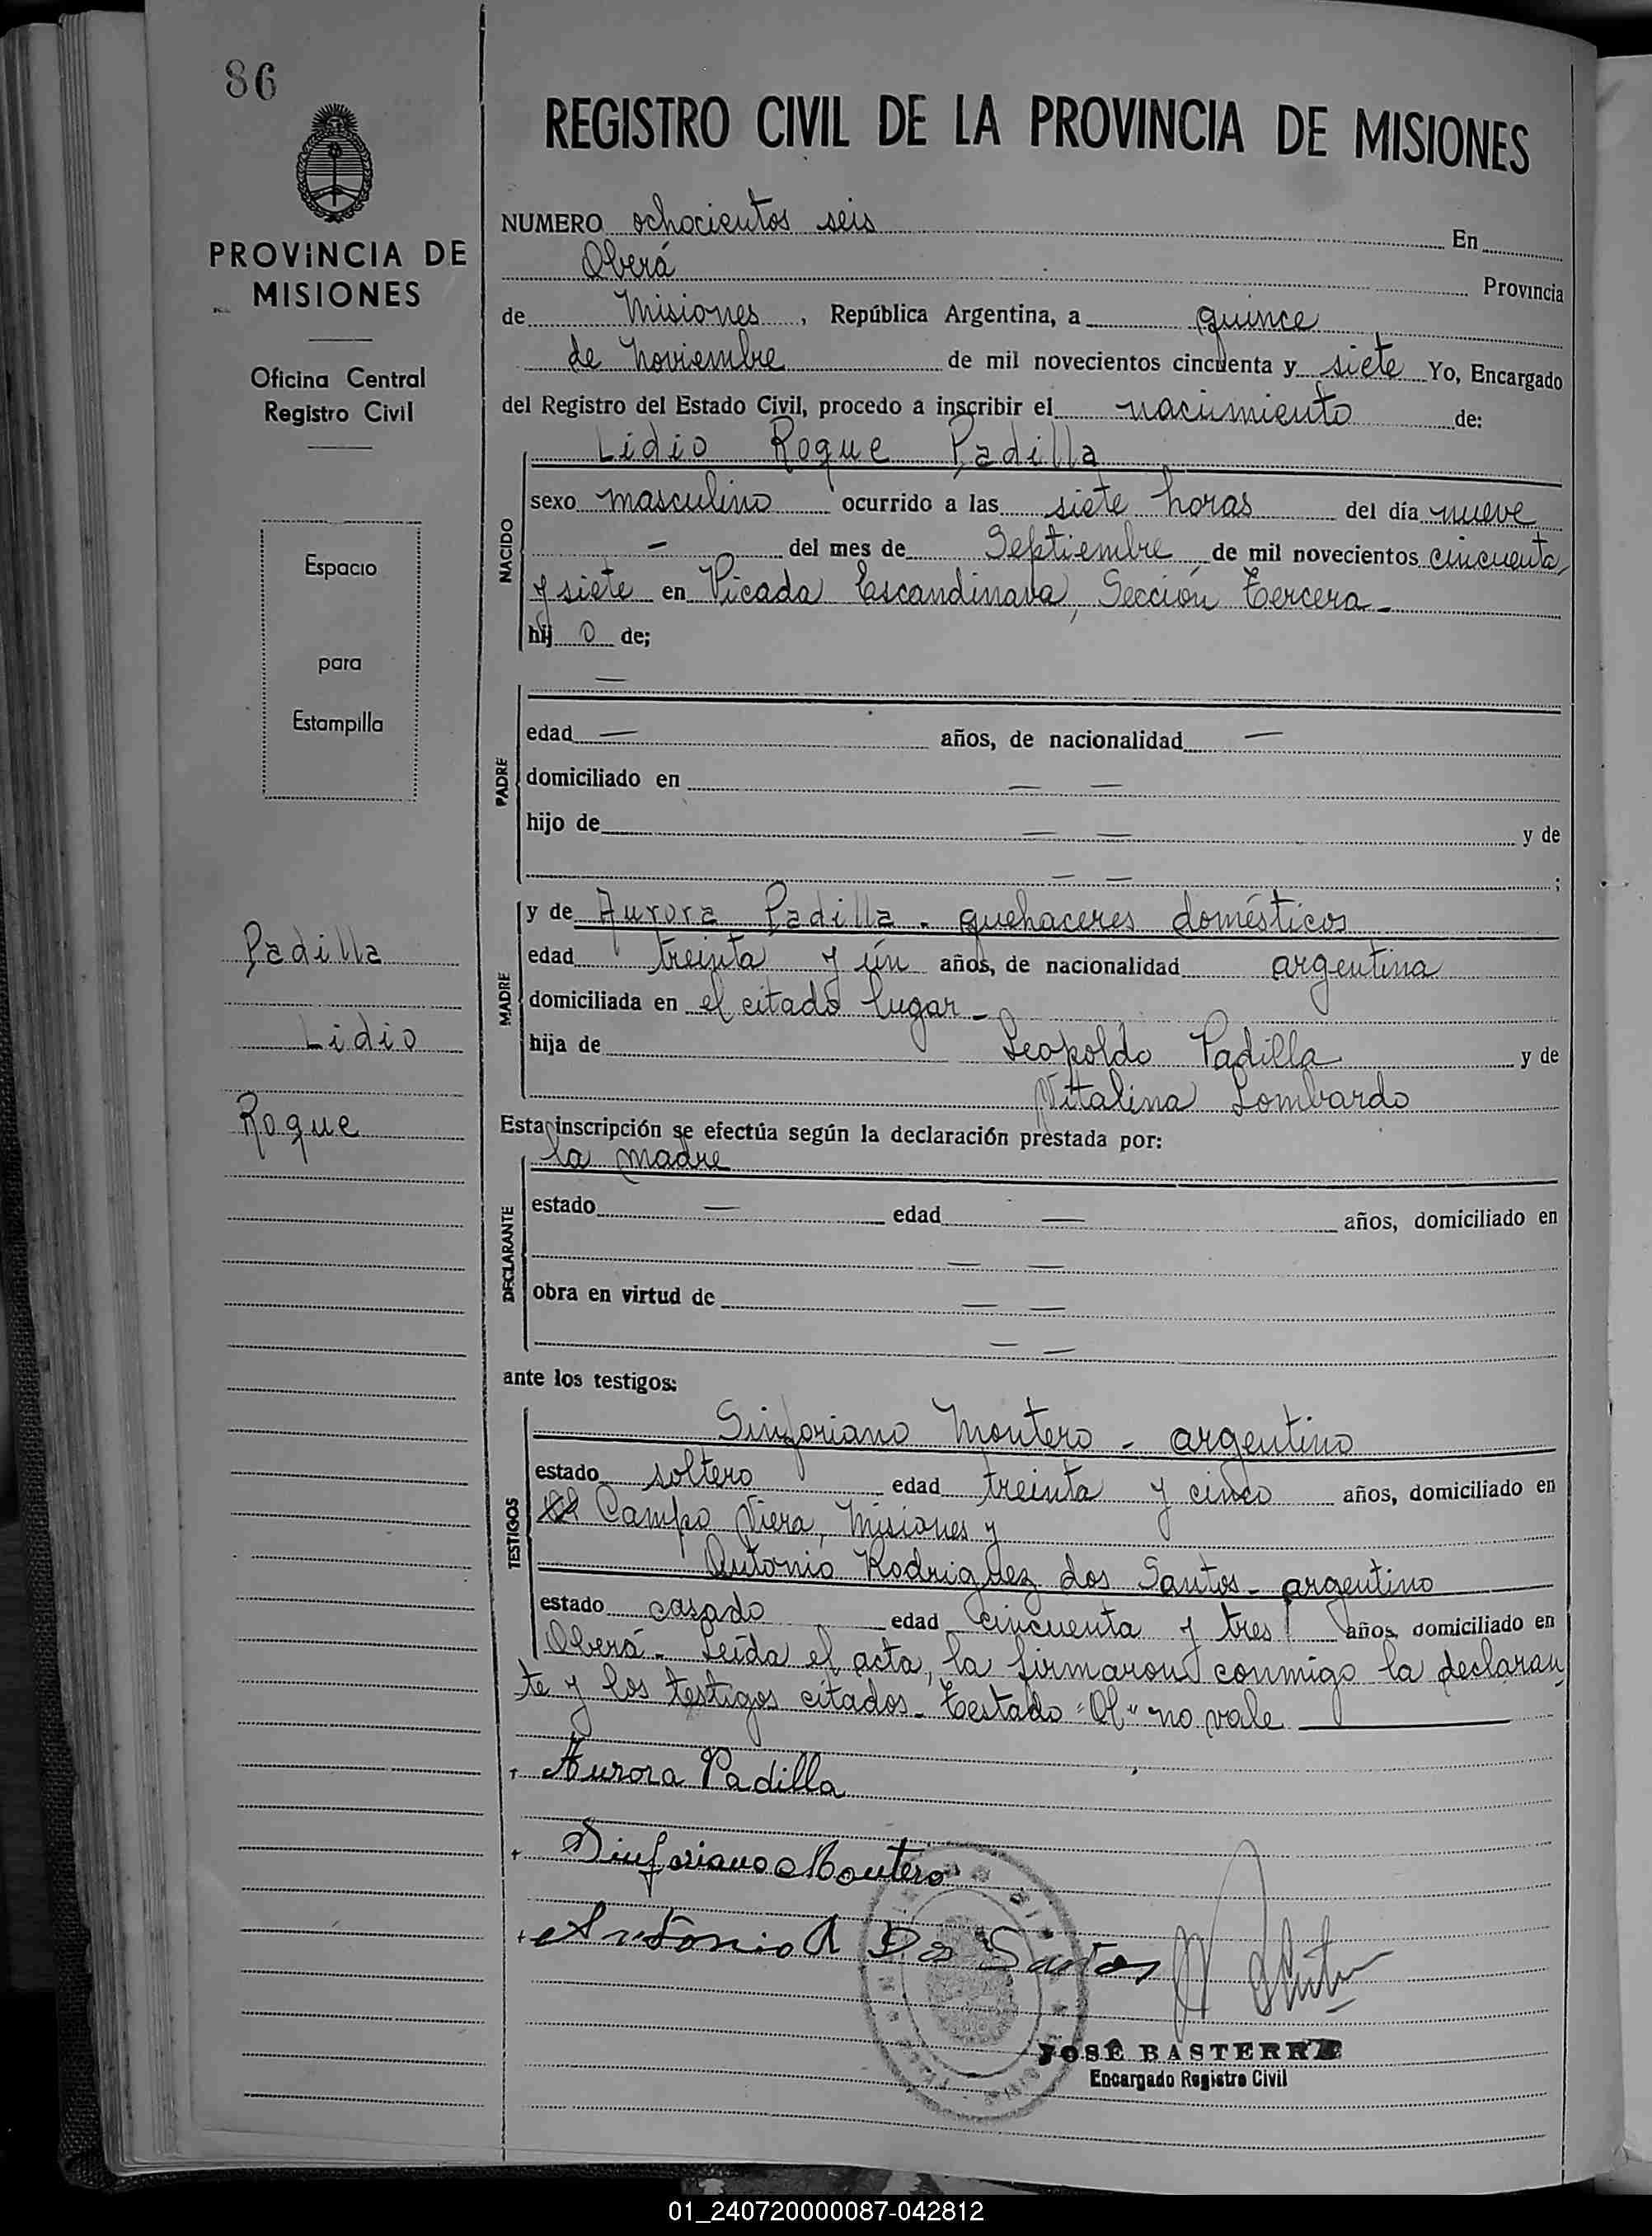 86
PROVINCIA DE
MISIONES
Oficina Central
Registro Civil
Espacio
para
Estampilla
Padilla
Lidio
Roque
REGISTRO CIVIL DE LA PROVINCIA DE MISIONES
NUMERO ochocientos seis En
Oberá Provincia
de Misiones, República Argentina, a quince
de Noviembre de mil novecientos cincuenta y siete Yo, Encargado
del Registro del Estado Civil, procedo a inscribir el nacimiento de:
Lidio Roque Padilla
NACIDO
sexo masculino ocurrido a las siete horas del día nueve
— del mes de Septiembre de mil novecientos cincuenta
y siete en Picada Escandinava, Sección Tercera -
hij o de;
—
PADRE
edad — años, de nacionalidad —
domiciliado en — —
hijo de — — y de
— — ;
MADRE
y de Aurora Padilla - quehaceres domésticos
edad treinta y ún años, de nacionalidad argentina
domiciliada en el citado lugar -
hija de Leopoldo Padilla y de
Vitalina Lombardo
Esta inscripción se efectúa según la declaración prestada por:
la madre
DECLARANTE
estado — edad — años, domiciliado en
— —
obra en virtud de — —
— —
ante los testigos:
TESTIGOS
Sinforiano Montero - argentino
estado soltero edad treinta y cinco años, domiciliado en
Campo Viera, Misiones y
Antonio Rodriguez dos Santos - argentino
estado casado edad cincuenta y tres años, domiciliado en
Oberá - Leída el acta, la firmaron conmigo la declaran
te y los testigos citados - Testado "Ol" no vale
Aurora Padilla
Sinforiano Montero
Antonio R Dos Santos
JOSÉ BASTERRE
Encargado Registro Civil
01_240720000087-042812